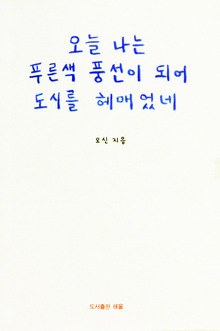 오늘 나는
푸른색 풍선이 되어
도시를 헤매었네
오신 지음
도서출판 해울